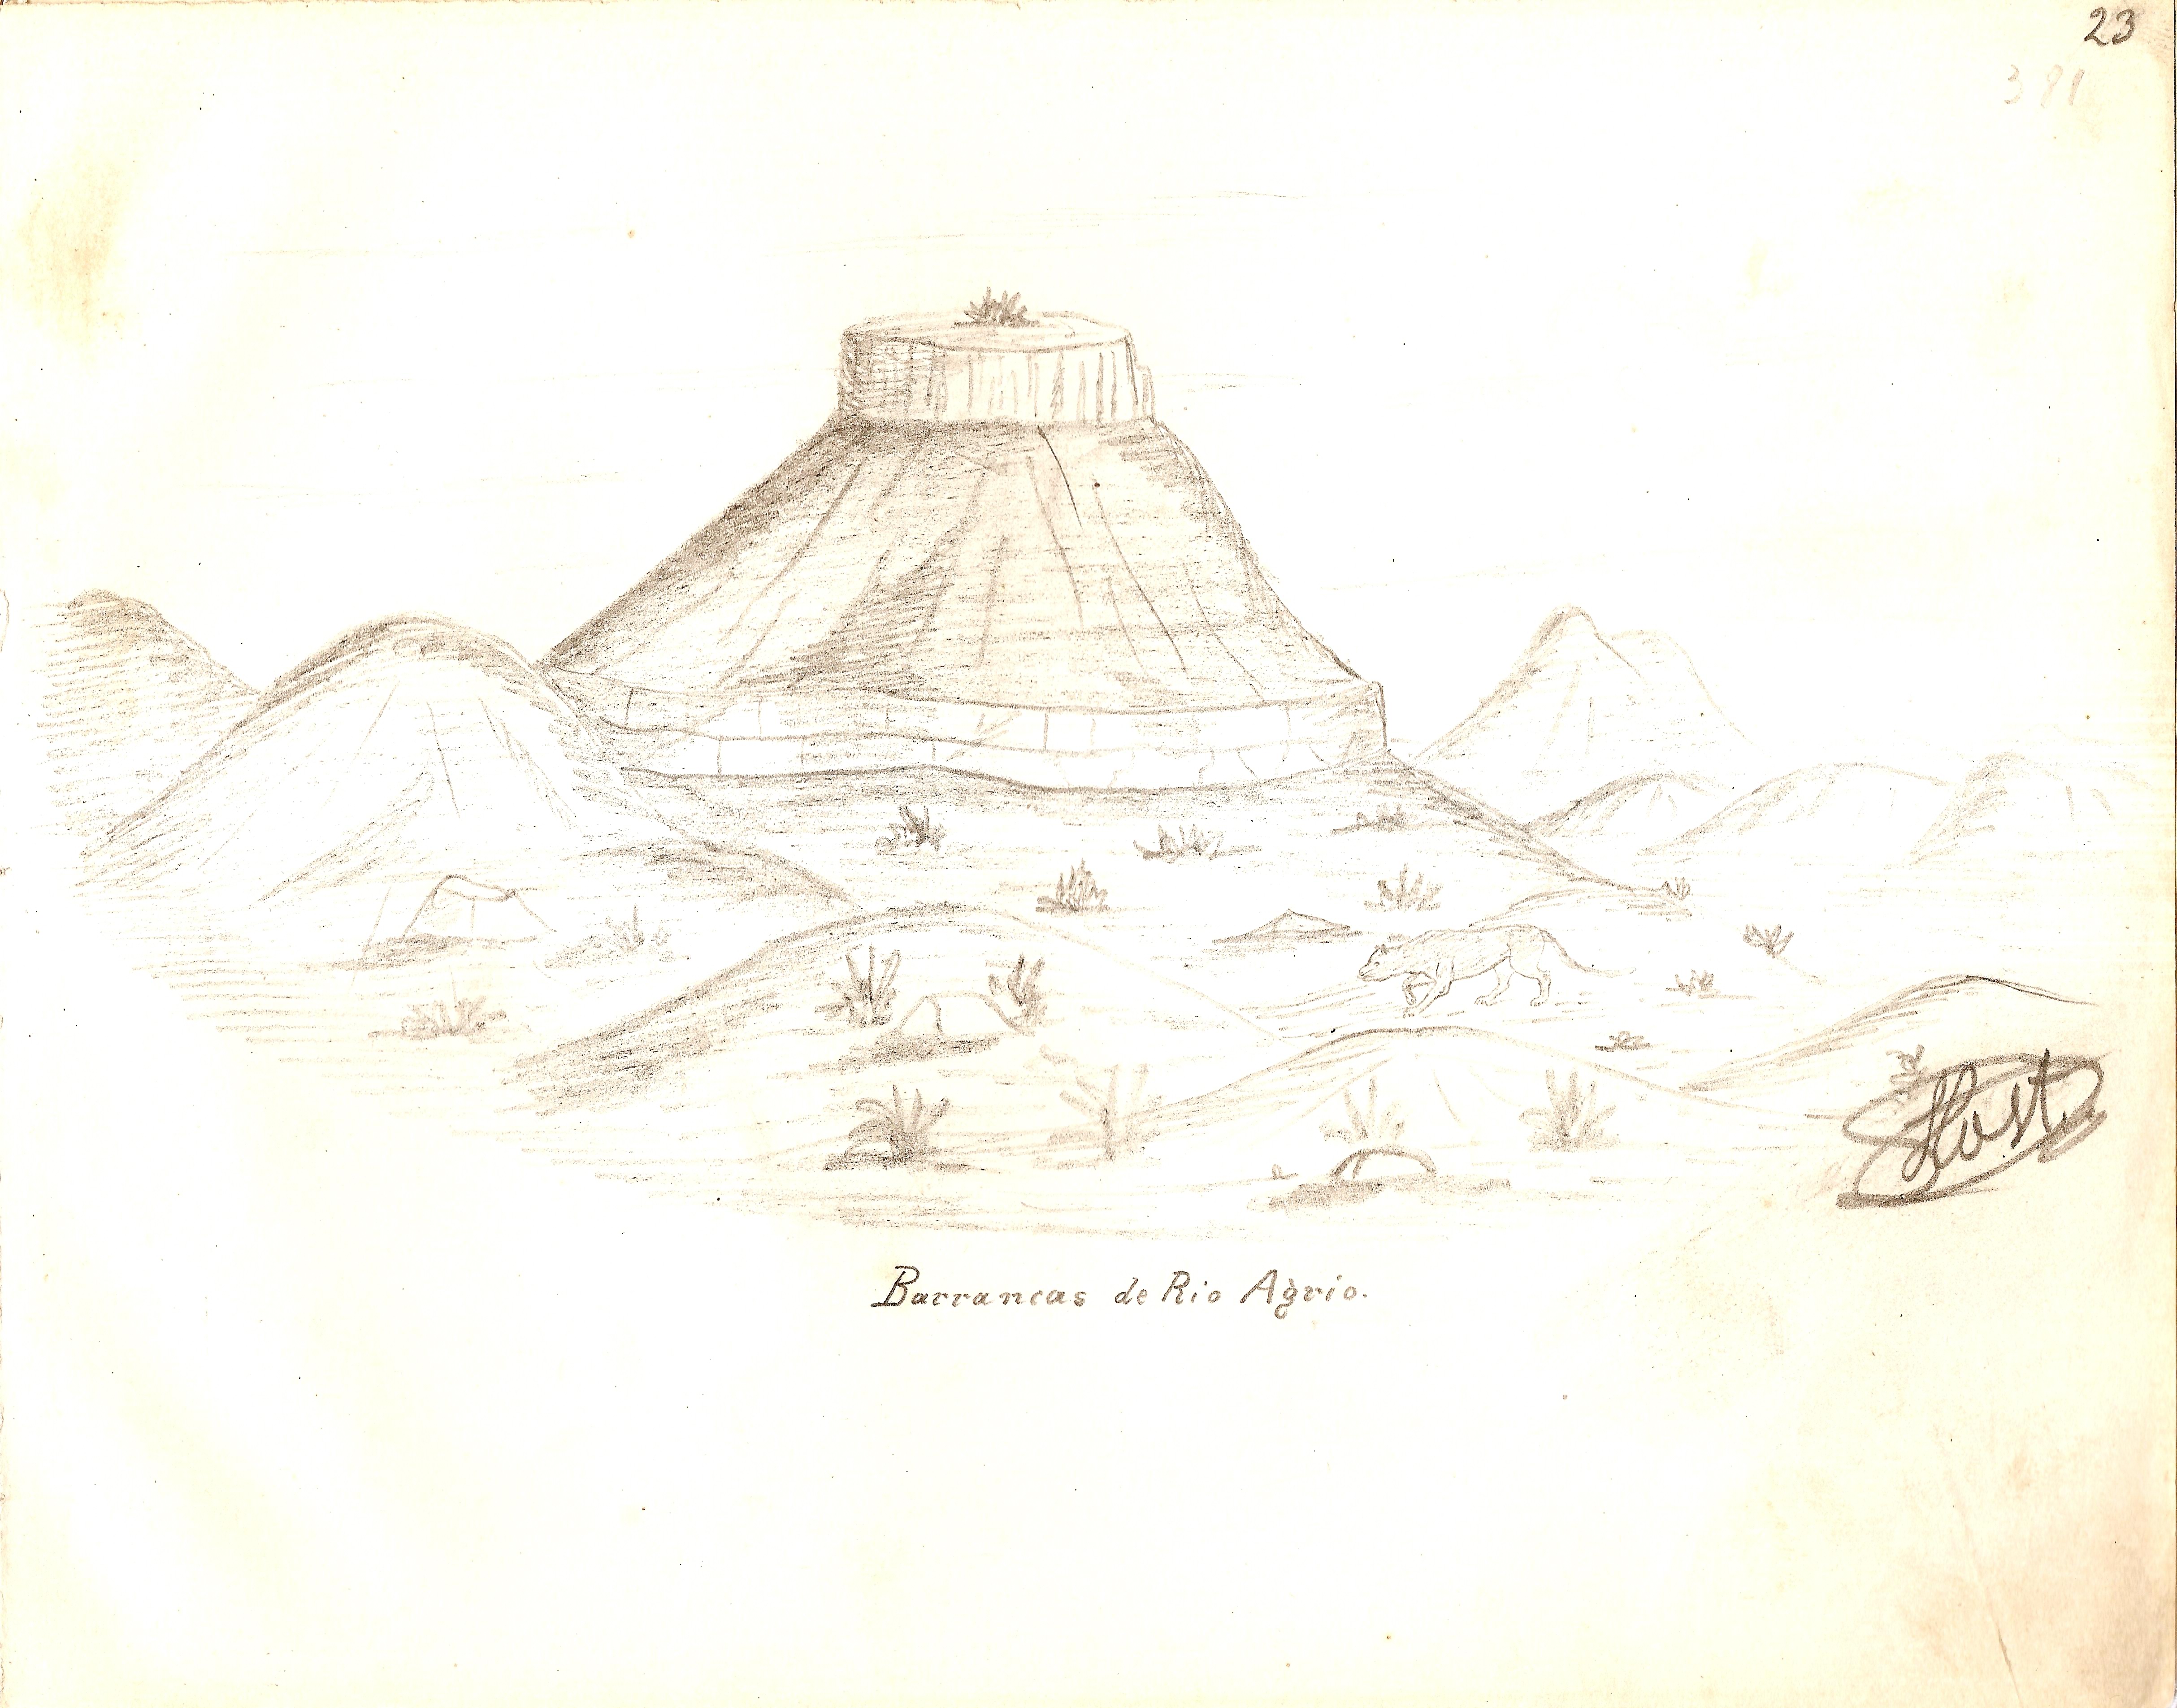 23
381
Host
Barrancas de Rio Agrio.